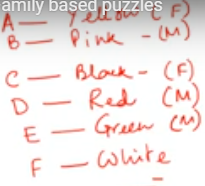 amily based puzzles
A — Yellow (F)
B — Pink - (M)
C — Black - (F)
D — Red (M)
E — Green (M)
F — White